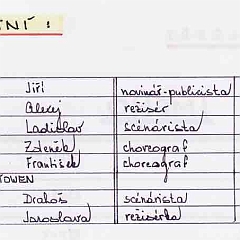 TNÍ:
Jiří novinář-publicista
Alexej režisér
Ladislav scénárista
Zdeněk choreograf
František choreograf
TOWEN
Drahoš scénárista
Jaroslava režisérka